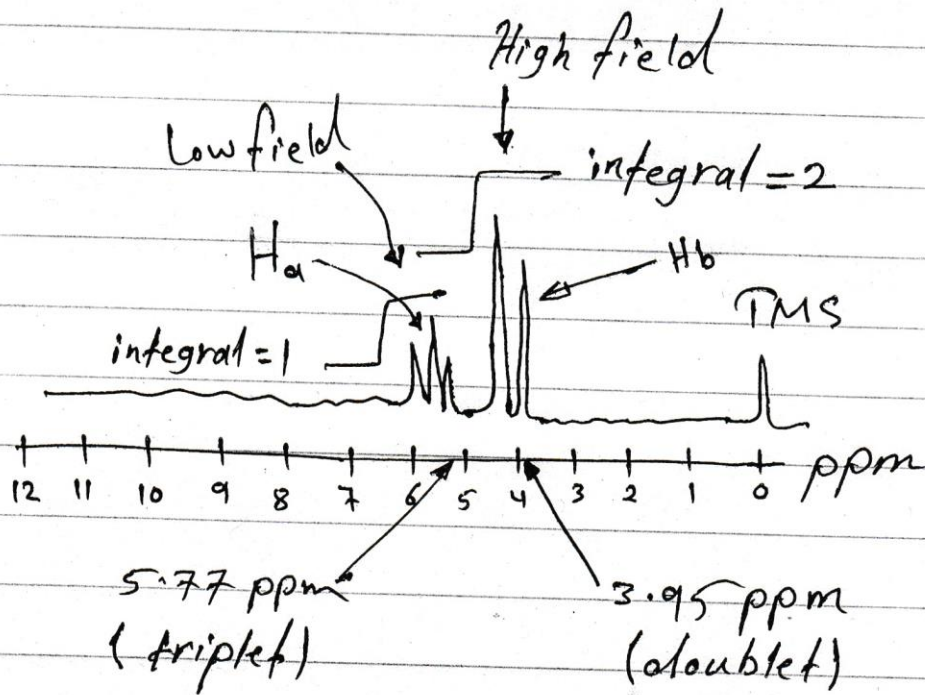 High field
Low field
integral = 2
Ha
Hb
TMS
integral = 1
12 11 10 9 8 7 6 5 4 3 2 1 0 ppm
5.77 ppm
3.95 ppm
(triplet)
(doublet)